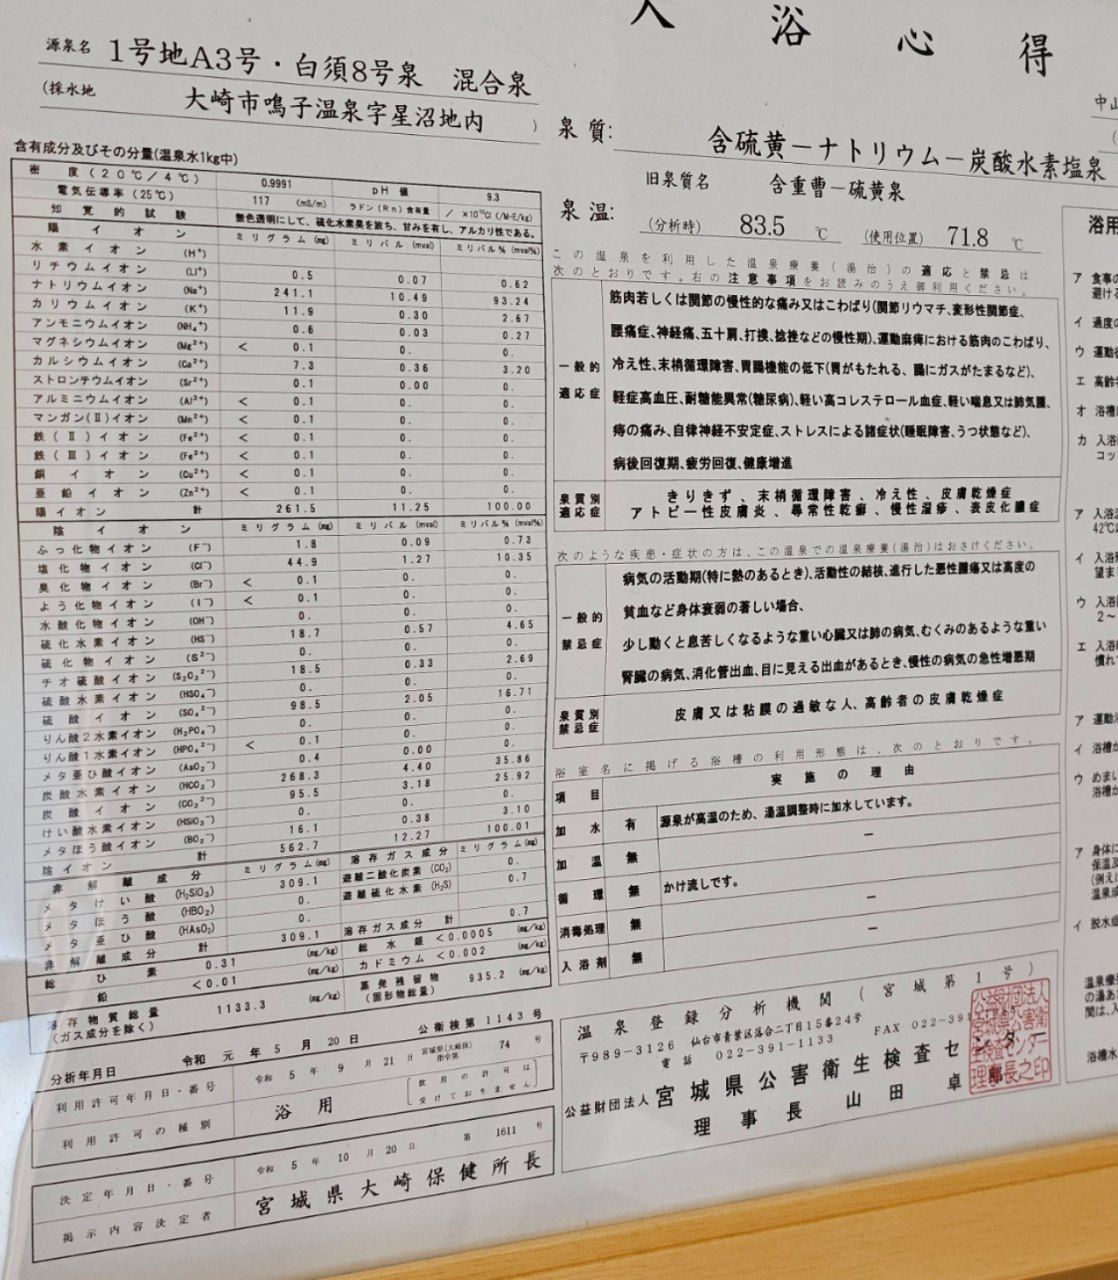 入浴心得
源泉名 1号地A3号・白須8号泉 混合泉
(採水地 大崎市鳴子温泉字星沼地内 )
含有成分及びその分量(温泉水1kg中)
密度(20℃/4℃) 0.9991 pH値 9.3
電気伝導率(25℃) 117 (mS/m) ラドン(Rn)含有量 / ×10⁻¹⁰Ci (/M-E/kg)
知覚的試験 無色透明にして、硫化水素臭を放ち、甘みを有し、アルカリ性である。
陽イオン ミリグラム(mg) ミリバル(mval) ミリバル%(mval%)
水素イオン (H⁺)
リチウムイオン (Li⁺) 0.5 0.07 0.62
ナトリウムイオン (Na⁺) 241.1 10.49 93.24
カリウムイオン (K⁺) 11.9 0.30 2.67
アンモニウムイオン (NH₄⁺) 0.6 0.03 0.27
マグネシウムイオン (Mg²⁺) < 0.1 0. 0.
カルシウムイオン (Ca²⁺) 7.3 0.36 3.20
ストロンチウムイオン (Sr²⁺) 0.1 0.00 0.
アルミニウムイオン (Al³⁺) < 0.1 0. 0.
マンガン(Ⅱ)イオン (Mn²⁺) < 0.1 0. 0.
鉄(Ⅱ)イオン (Fe²⁺) < 0.1 0. 0.
鉄(Ⅲ)イオン (Fe³⁺) < 0.1 0. 0.
銅イオン (Cu²⁺) < 0.1 0. 0.
亜鉛イオン (Zn²⁺) < 0.1 0. 0.
陽イオン 計 261.5 11.25 100.00
陰イオン ミリグラム(mg) ミリバル(mval) ミリバル%(mval%)
ふっ化物イオン (F⁻) 1.8 0.09 0.73
塩化物イオン (Cl⁻) 44.9 1.27 10.35
臭化物イオン (Br⁻) < 0.1 0. 0.
よう化物イオン (I⁻) < 0.1 0. 0.
水酸化物イオン (OH⁻) 0. 0. 0.
硫化水素イオン (HS⁻) 18.7 0.57 4.65
硫化物イオン (S²⁻) 0. 0. 0.
チオ硫酸イオン (S₂O₃²⁻) 18.5 0.33 2.69
硫酸水素イオン (HSO₄⁻) 0. 0. 0.
硫酸イオン (SO₄²⁻) 98.5 2.05 16.71
りん酸2水素イオン (H₂PO₄⁻) 0. 0. 0.
りん酸1水素イオン (HPO₄²⁻) < 0.1 0. 0.
メタ亜ひ酸イオン (AsO₂⁻) 0.4 0.00 0.
炭酸水素イオン (HCO₃⁻) 268.3 4.40 35.86
炭酸イオン (CO₃²⁻) 95.5 3.18 25.92
けい酸水素イオン (HSiO₃⁻) 0. 0. 0.
メタほう酸イオン (BO₂⁻) 16.1 0.38 3.10
陰イオン 計 562.7 12.27 100.01
非解離成分 ミリグラム(mg) 溶存ガス成分 ミリグラム(mg)
メタけい酸 (H₂SiO₃) 309.1 遊離二酸化炭素 (CO₂) 0.
メタほう酸 (HBO₂) 0. 遊離硫化水素 (H₂S) 0.7
メタ亜ひ酸 (HAsO₂) 0.
非解離成分 計 309.1 溶存ガス成分 計 0.7
総ひ素 0.31 (mg/kg) 総水銀 <0.0005 (mg/kg)
鉛 <0.01 (mg/kg) カドミウム <0.002 (mg/kg)
溶存物質総量(ガス成分を除く) 1133.3 (mg/kg) 蒸発残留物(固形物総量) 935.2 (mg/kg)
分析年月日 令和元年5月20日 公衛検第1143号
利用許可年月日・番号 令和5年9月21日 宮城県(大崎保)指令第 74 号
利用許可の種別 浴用 〔飲用の許可は受けておりません〕
決定年月日・番号 令和5年10月20日 第 1611 号
掲示内容決定者 宮城県大崎保健所長
泉質: 含硫黄−ナトリウム−炭酸水素塩泉
旧泉質名 含重曹−硫黄泉
泉温: (分析時) 83.5 ℃ (使用位置) 71.8 ℃
この温泉を利用した温泉療養(湯治)の適応と禁忌は
次のとおりです。右の注意事項をお読みのうえ御利用ください。
一般的適応症
筋肉若しくは関節の慢性的な痛み又はこわばり(関節リウマチ、変形性関節症、
腰痛症、神経痛、五十肩、打撲、捻挫などの慢性期)、運動麻痺における筋肉のこわばり、
冷え性、末梢循環障害、胃腸機能の低下(胃がもたれる、腸にガスがたまるなど)、
軽症高血圧、耐糖能異常(糖尿病)、軽い高コレステロール血症、軽い喘息又は肺気腫、
痔の痛み、自律神経不安定症、ストレスによる諸症状(睡眠障害、うつ状態など)、
病後回復期、疲労回復、健康増進
泉質別適応症
きりきず、末梢循環障害、冷え性、皮膚乾燥症
アトピー性皮膚炎、尋常性乾癬、慢性湿疹、表皮化膿症
次のような疾患・症状の方は、この温泉での温泉療養(湯治)はおさけください。
一般的禁忌症
病気の活動期(特に熱のあるとき)、活動性の結核、進行した悪性腫瘍又は高度の
貧血など身体衰弱の著しい場合、
少し動くと息苦しくなるような重い心臓又は肺の病気、むくみのあるような重い
腎臓の病気、消化管出血、目に見える出血があるとき、慢性の病気の急性増悪期
泉質別禁忌症
皮膚又は粘膜の過敏な人、高齢者の皮膚乾燥症
浴室名に掲げる浴槽の利用形態は、次のとおりです。
項目 実施の理由
加水 有 源泉が高温のため、湯温調整時に加水しています。
加温 無 −
循環 無 かけ流しです。
消毒処理 無 −
入浴剤 無 −
温泉登録分析機関 (宮城第1号)
〒989-3126 仙台市青葉区落合二丁目15番24号
電話 022-391-1133 FAX 022-391
公益財団法人 宮城県公害衛生検査センター
理事長 山田 卓郎
公益財団法人宮城県公害衛生検査センター理事長之印
中山
浴用
ア 食事の
避ける
イ 過度の
ウ 運動後
エ 高齢者
オ 浴槽
カ 入浴
コッ
ア 入浴温
42℃
イ 入浴
望ま
ウ 入浴
2〜
エ 入浴
慣れ
ア 運動浴
イ 浴槽か
ウ めまい
浴槽か
ア 身体に
保温及
(例えば
温泉成
イ 脱水症
温泉療
の湯あ
間は、入
浴槽水